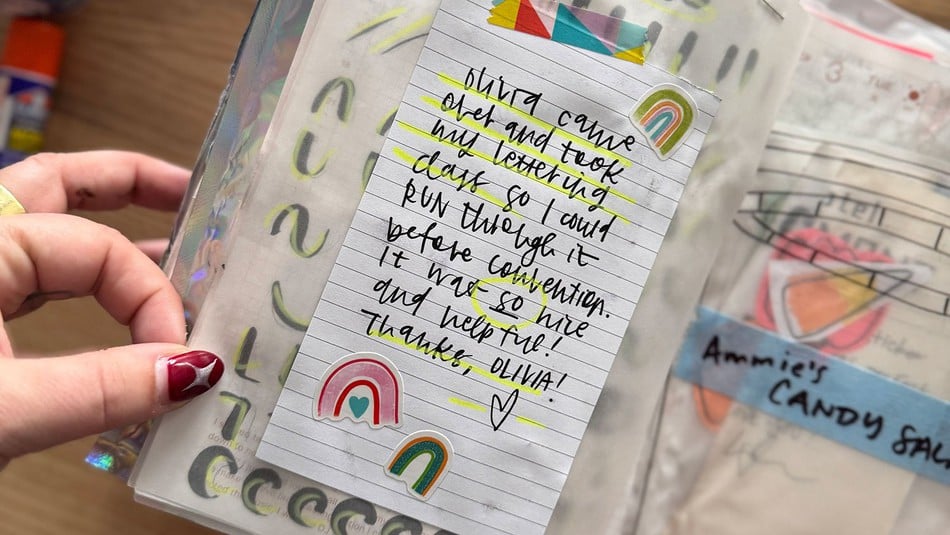 Olivia came
over and took
my lettering
class so I could
RUN through it
before convention.
it was so nice
and helpful!
Thanks, OLIVIA!
Ammie's
CANDY